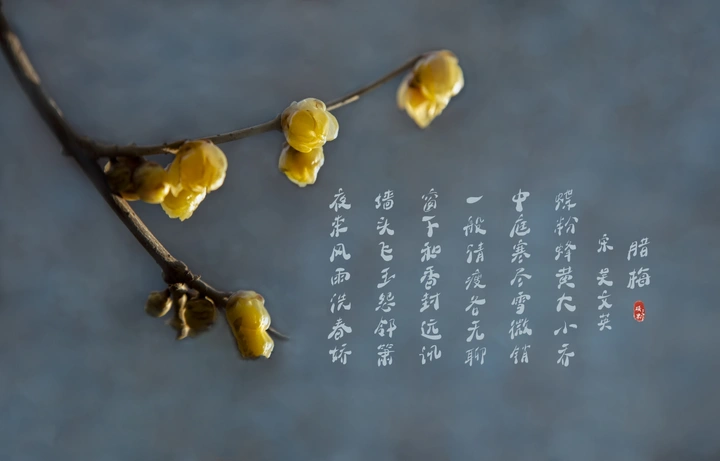 腊梅
宋 吴文英
蝶粉蜂黄大小乔
中庭寒尽雪微销
一般清瘦各无聊
窗下和香封远讯
墙头飞玉怨邻箫
夜来风雨洗春娇